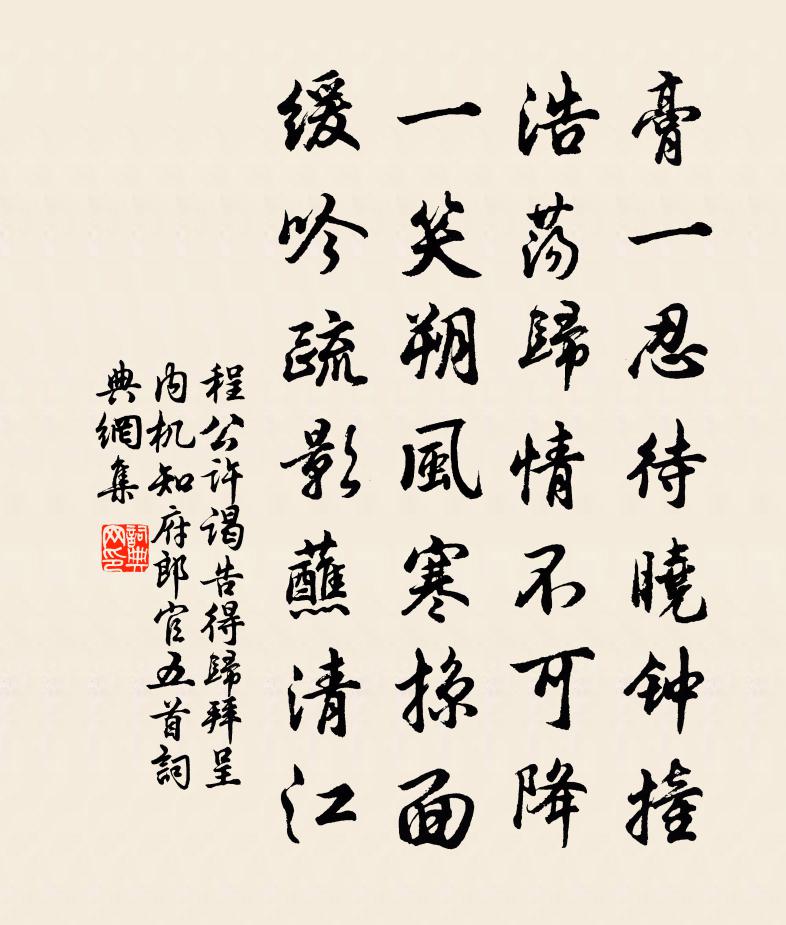 膏一忍待曉钟撞
浩荡歸情不可降
一笑朔風寒掠面
缓吟疏影蘸清江
程公许谒告得歸拜呈
内机知府郎官五首詞
典網集
詞典
网印